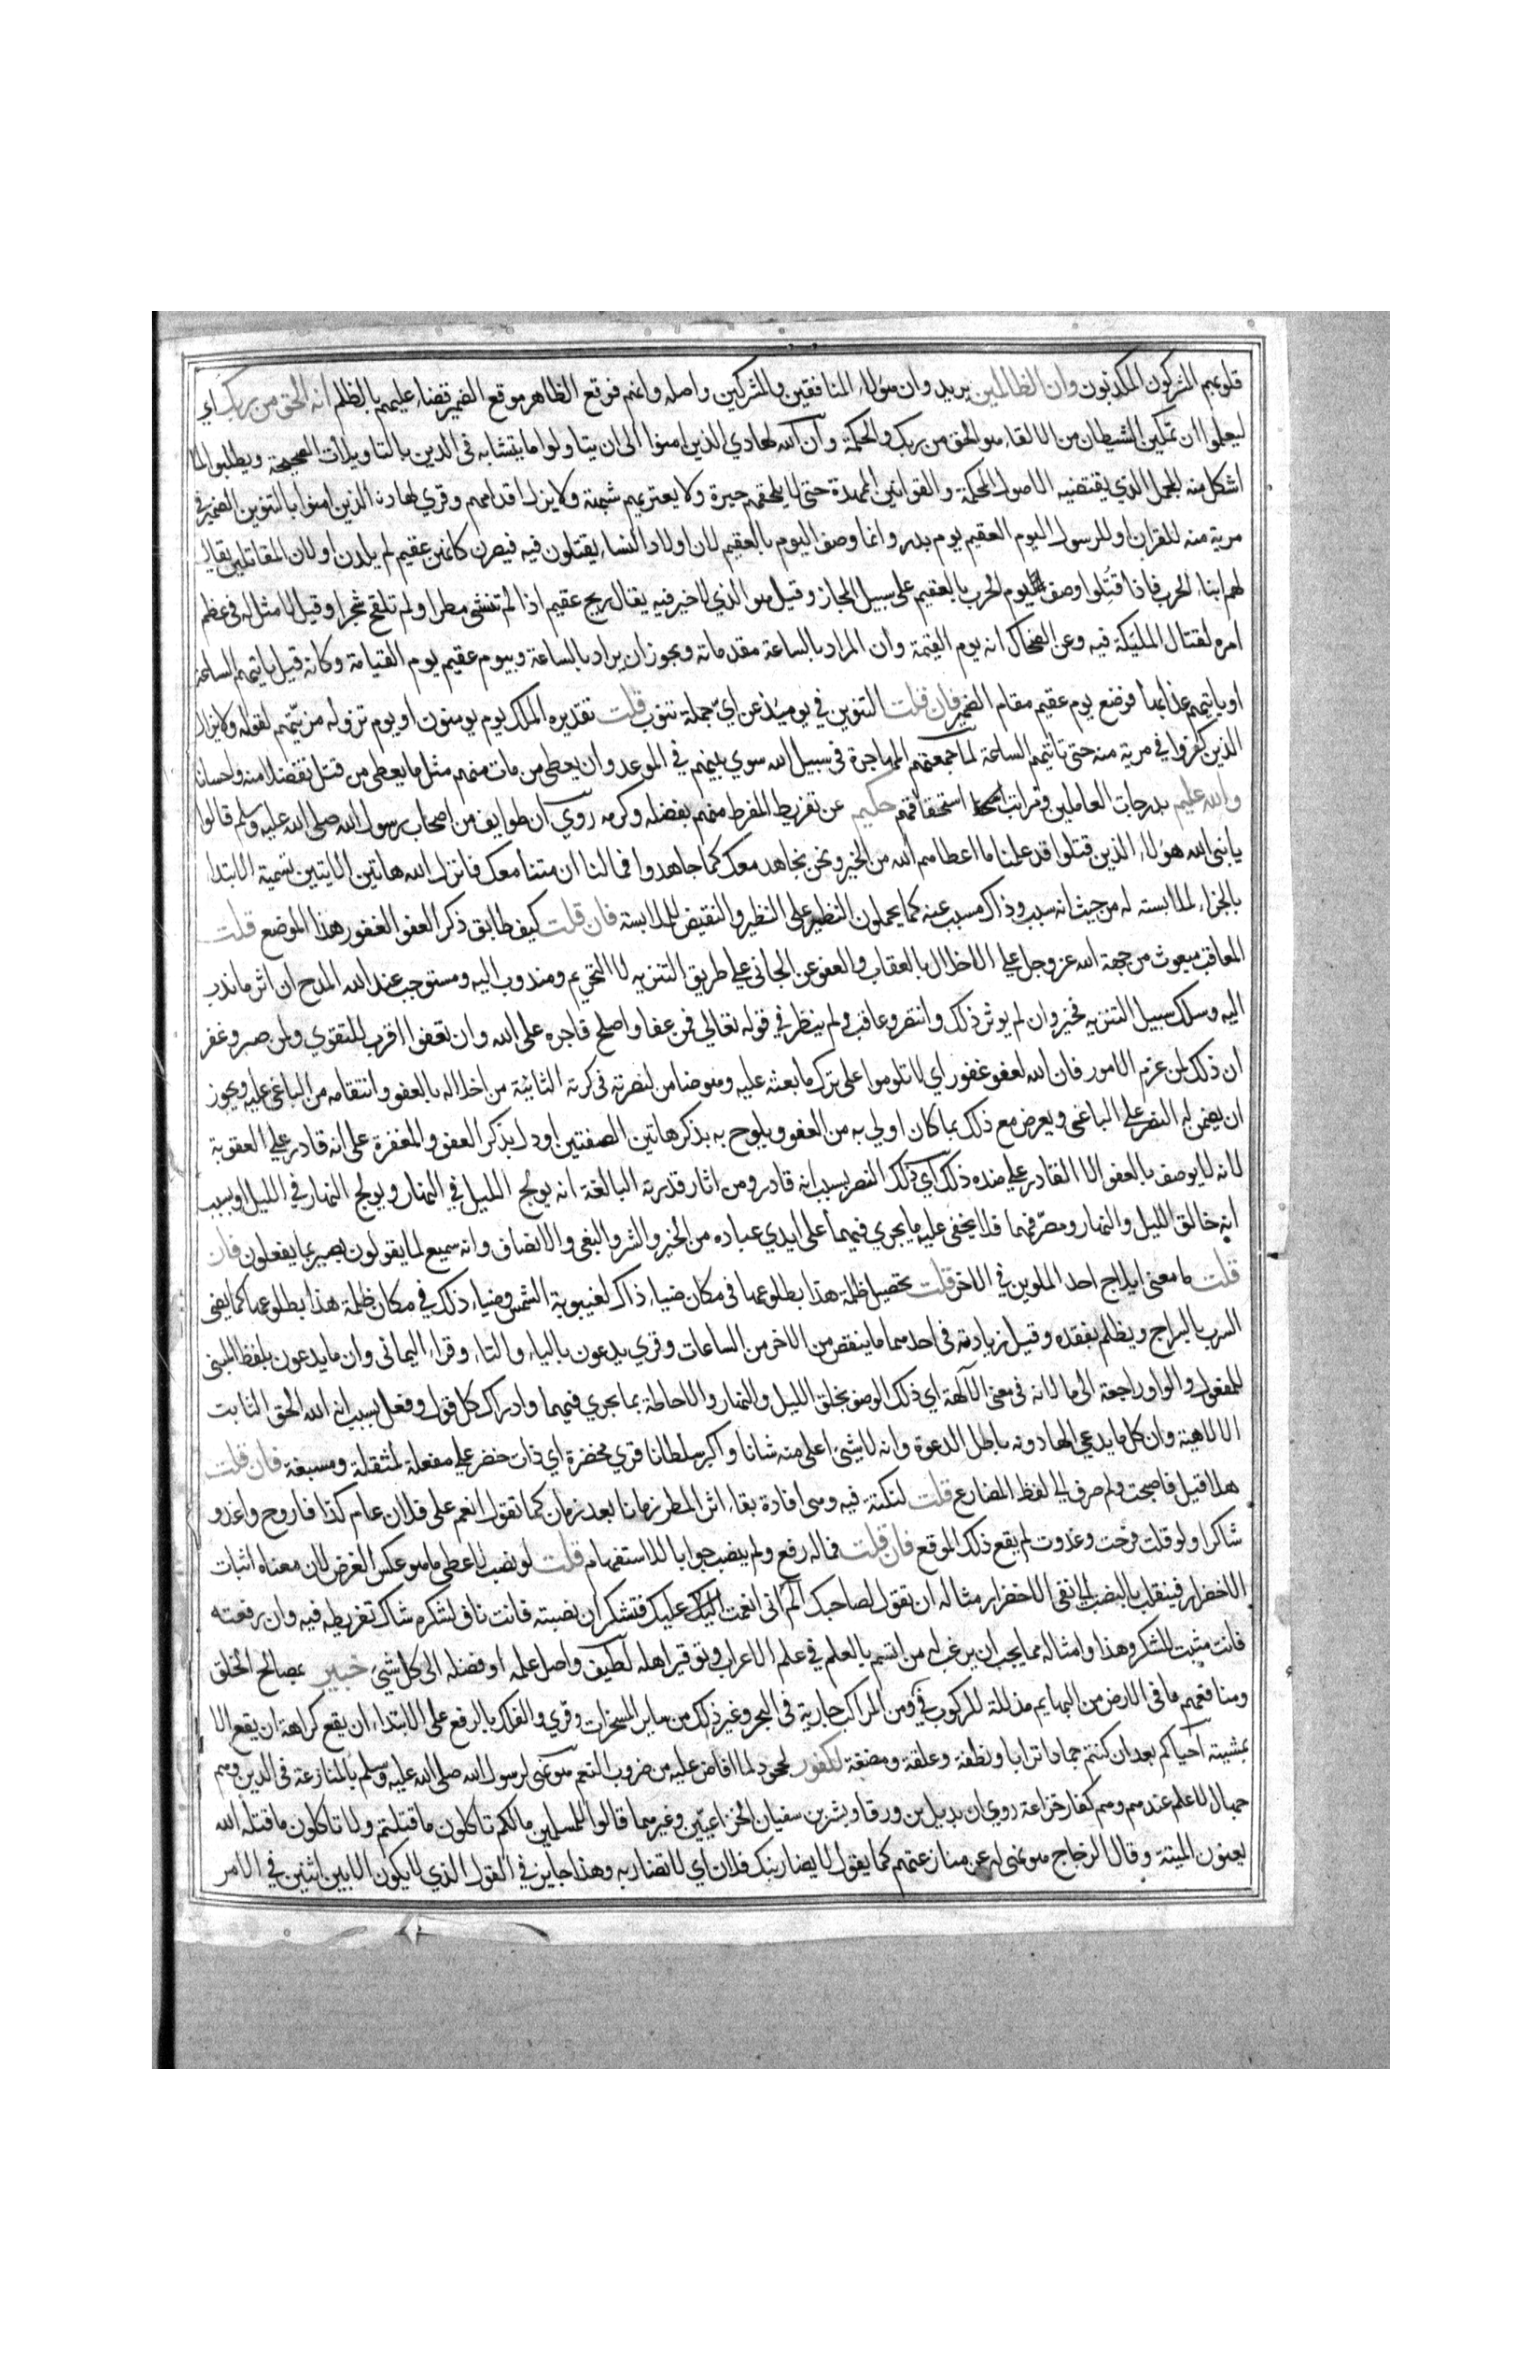 قلوبهم المشركون المكذبون وان الظالمين يريد وان هؤلاء المنافقين والمشركين واصله وانهم فوقع الظاهر موقع الضمير قضاء عليهم بالظلم انه الحق من ربك اي
ليعلموا ان تمكين الشيطان من الالقاء هو الحق من ربك والحكمة وان الله لهادي الذين امنوا الى ان يتاولوا ما يتشابه في الدين بالتاويلات الصحيحة ويطلبوا لما
اشكل منه المحمل الذي يقتضيه الاصول المحكمة والقوانين الممهدة حتى لا يلحقهم حيرة ولا يعتريهم شبهة ولا يزل اقدامهم وقري لهاد الذين امنوا بالتنوين الضمير في
مرية منه للقران او للرسول اليوم العقيم يوم بدر وانما وصف اليوم بالعقيم لان اولاد النساء يقتلون فيه فيصرن كانهن عقيم لم يلدن او لان المقاتلين يقال
لهم ابناء الحرب فاذا قتلوا وصف يوم الحرب بالعقيم على سبيل المجاز وقيل هو الذي لا خير فيه يقال ريح عقيم اذا لم تنشئ مطرا ولم تلقح شجرا وقيل لا مثل له في عظم
امره لقتال المليكة فيه وعن الضحاك انه يوم القيمة وان المراد بالساعة مقدماته ويجوز ان يراد بالساعة وبيوم عقيم يوم القيامة وكانه قيل ياتيهم الساعة
او ياتيهم عذابها فوضع يوم عقيم مقام الضمير فان قلت التنوين في يوميذ عن اي جملة تنوب قلت تقديره الملك يوم يومنون او يوم تزول مريتهم لقوله ولا يزال
الذين كفروا في مرية منه حتى تاتيهم الساعة لما جمعتهم المهاجرة في سبيل الله سوي بينهم في الموعد وان يعطي من مات منهم مثل ما يعطي من قتل تفضلا منه واحسانا
والله عليم بدرجات العاملين ومراتب استحقاقهم حكيم عن تفريط المفرط منهم بفضله وكرمه روي ان طوايف من اصحاب رسول الله صلى الله عليه وسلم قالوا
يا نبي الله هؤلاء الذين قتلوا قد علمنا ما اعطاهم الله من الخير ونحن نجاهد معك كما جاهدوا فما لنا ان متنا معك فانزل الله هاتين الايتين تسمية الابتداء
بالجزاء لملابسته له من حيث انه سبب وذاك مسبب عنه كما يحملون النظير على النظير والنقيض على النقيض للملابسة فان قلت كيف طابق ذكر العفو الغفور هذا الموضع قلت
المعاقب مبعوث من جهة الله عز وجل على الاخلال بالعقاب والعفو عن الجاني على طريق التنزيه لا التحريم ومندوب اليه ومستوجب عند الله المدح ان اثر ما ندب
اليه وسلك سبيل التنزيه فحين لم يوثر ذلك وانتصر وعاقب ولم ينظر في قوله تعالي فمن عفا واصلح فاجره على الله وان تعفوا اقرب للتقوي ولمن صبر وغفر
ان ذلك لمن عزم الامور فان الله لعفو غفور اي لا تلوموا على ترك ما بعثه عليه وهو ضامن لنصرته في كرته الثانية من اخلاله بالعفو وانتقامه من الباغي عليه ويجوز
ان يضمن له النصر على الباغي ويعرض مع ذلك بما كان اولي به من العفو ويلوح به بذكر هاتين الصفتين او دل بذكر العفو والمغفرة على انه قادر على العقوبة
لانه لا يوصف بالعفو الا القادر على ضده ذلك اي ذلك النصر بسبب انه قادر ومن اثار قدرته البالغة انه يولج الليل في النهار ويولج النهار في الليل او بسبب
انه خالق الليل والنهار ومصرفهما فلا يخفى عليه ما يجري فيهما على ايدي عباده من الخير والشر والبغي والانصاف وانه سميع لما يقولون بصير بما يفعلون فان
قلت ما معنى ايلاج احد الملوين في الاخر قلت تحصيل ظلمة هذا في مكان ضياء ذاك لغيبوبة الشمس وضياء ذلك في مكان ظلمة هذا بطلوعها كما يضي
السرب بالسراج ويظلم بفقده وقيل زيادته في احدهما ما ينقص من الاخر من الساعات وقري يدعون بالياء والتاء وقراء اليماني وان ما يدعون بلفظ المبني
للمفعول والواو راجعة الى ما لانه في معنى الالهة اي ذلك الوصف بخلق الليل والنهار والاحاطة بما يجري فيهما وادراك كل قول وفعل بسبب انه الله الحق الثابت
الالاهية وان كل ما يدعي الها دونه باطل الدعوة وانه لا شيئ اعلى منه شانا واكبر سلطانا قري مخضرة اي ذات خضر على مفعلة لمثقلة ومسبعة فان قلت
هلا قيل فاصبحت ولم صرف الى لفظ المضارع قلت لنكتة فيه وهى افادة بقاء اثر المطر زمانا بعد زمان كما تقول انعم على فلان عام كذا فاروح واغدو
شاكرا ولو قلت فرحت وغدوت لم يقع ذلك الموقع فان قلت فما له رفع ولم ينصب جوابا للاستفهام قلت لو نصب لاعطى ما هو عكس الغرض لان معناه اثبات
الاخضرار فينقلب بالنصب الى نفي الاخضرار مثاله ان تقول لصاحبك الم تر اني انعمت عليك فتشكر ان نصبته فانت ناف لشكره شاك تفريطه فيه وان رفعته
فانت مثبت للشكر وهذا وامثاله مما يجب ان يرغب له من اتسم بالعلم في علم الاعراب وتوقير اهله لطيف واصل علمه او فضله الى كل شئ خبير بمصالح الخلق
ومنافعهم ما في الارض من البهايم مذللة للركوب في البر ومن المراكب جارية في البحر وغير ذلك من ساير المسخرات وقري والفلك بالرفع على الابتداء ان يقع كراهة ان يقع الا
بمشيته احياكم بعد ان كنتم جمادا ترابا ونطفة وعلقة ومضغة لكفور لجحود لما افاض عليه من ضروب النعم هو نهي لرسول الله صلى الله عليه وسلم بالمنازعة في الدين وهم
جهال لا علم عندهم وهم كفار خزاعة روي ان بديل بن ورقا وبشر بن سفيان الخزاعيين وغيرهما قالوا للمسلمين مالكم تاكلون ما قتلتم ولا تاكلون ما قتله الله
يعنون الميتة وقال الزجاج هو نهي له عن منازعتهم كما يقول لا يضاربنك فلان اي لا تضاربه وهذا جايز في القول الذي لا يكون الا بين اثنين في الامر